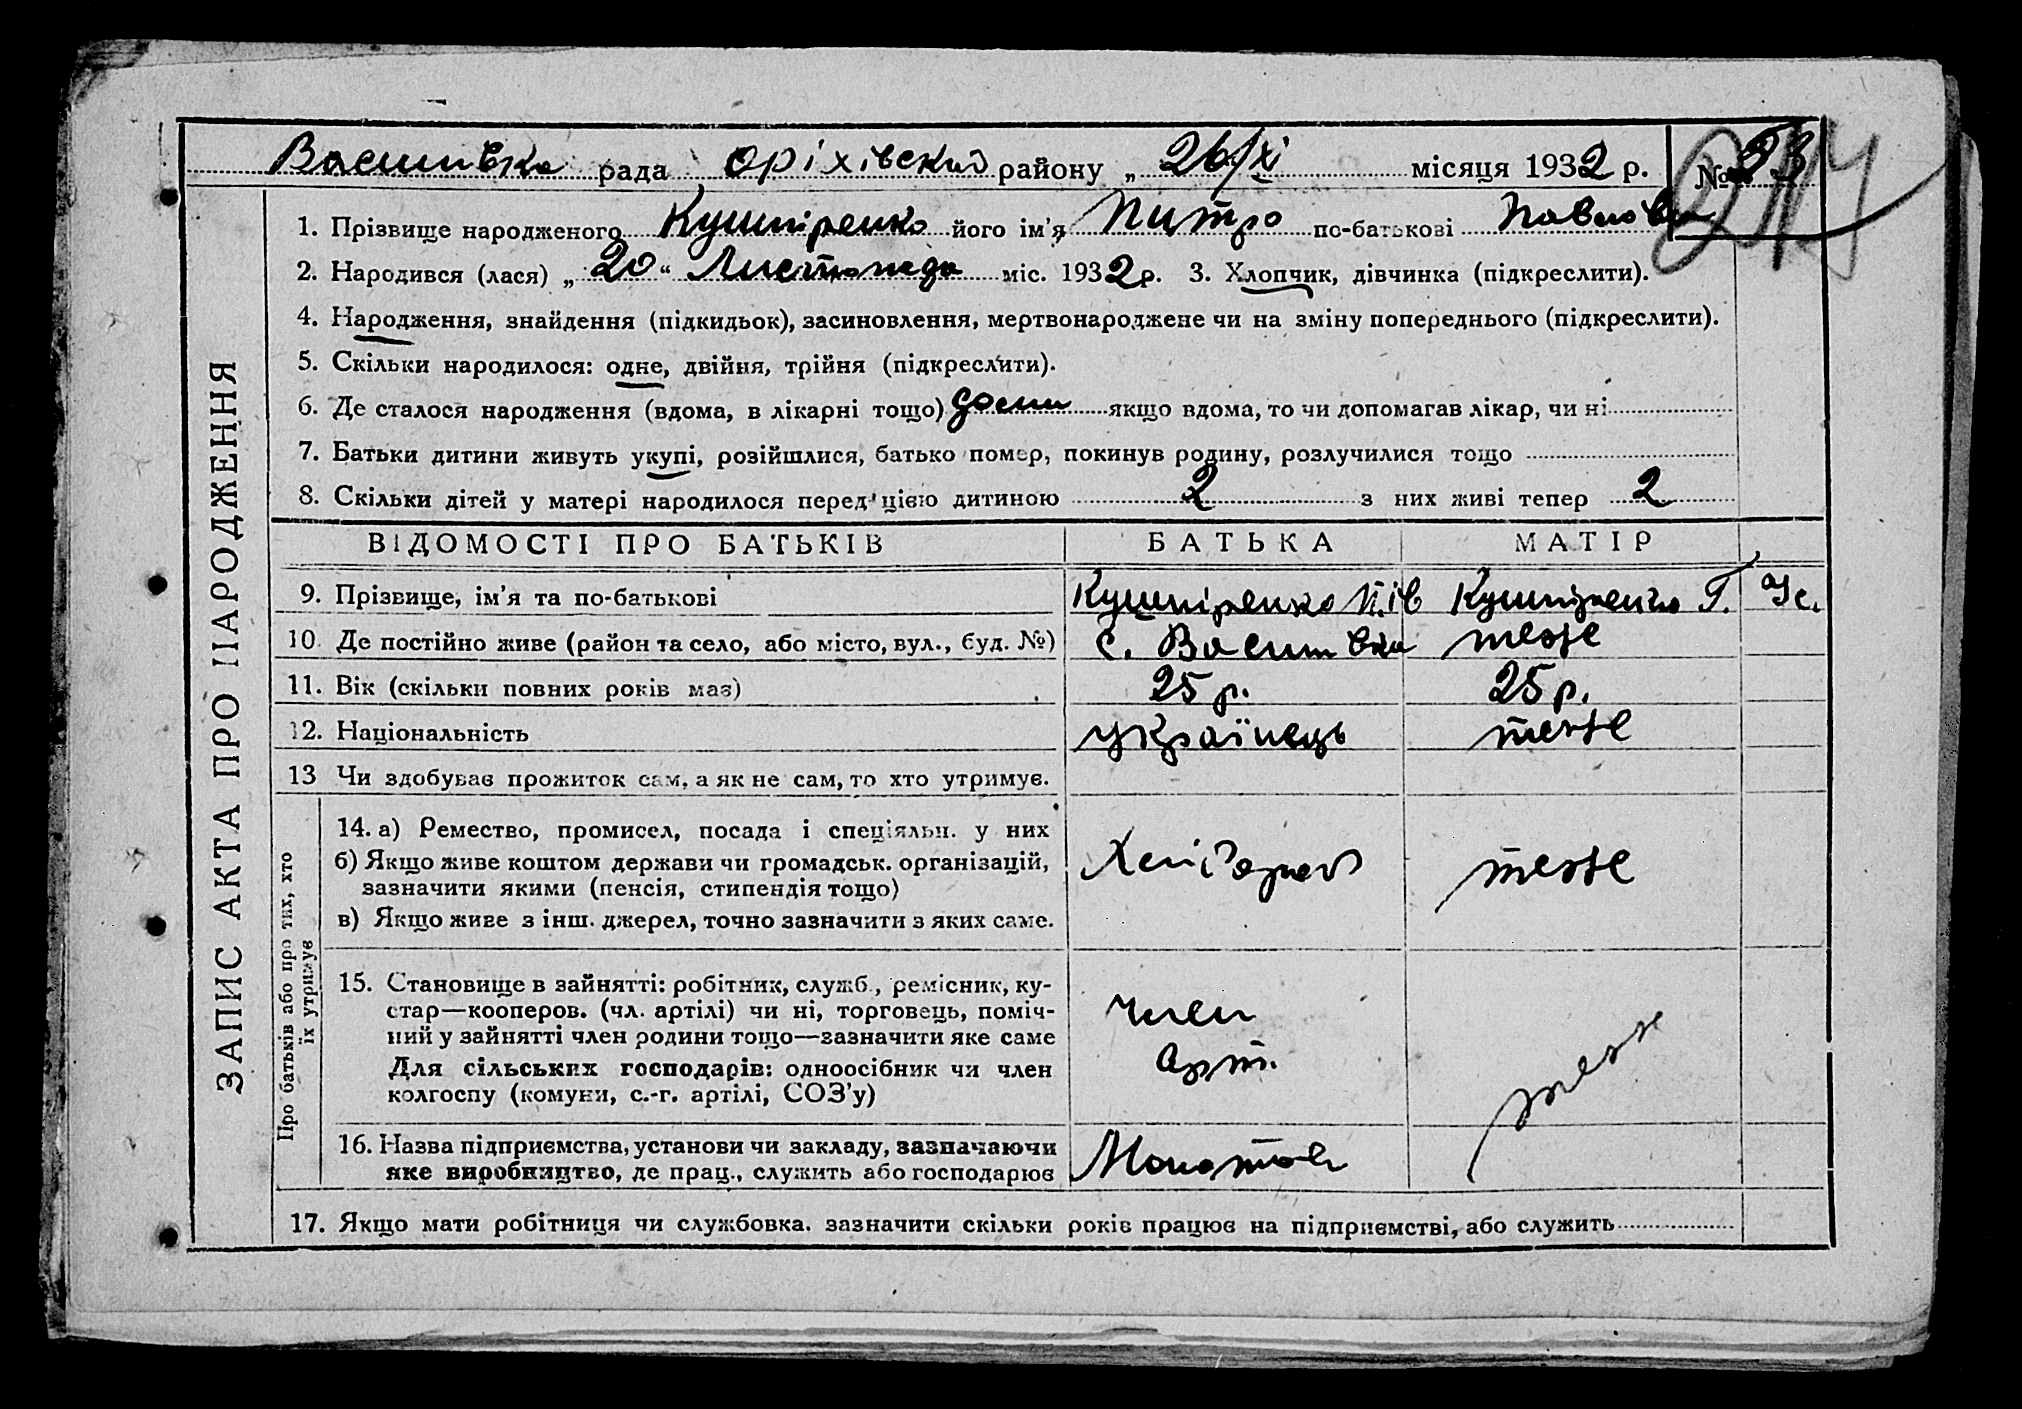 рада Оріхівский району „ 26/XI місяця 1932 р. № 53
1. Прізвище народженого Кушніренко його ім'я Питро по-батькові
2. Народився (лася) „20“ Листопада міс. 1932 р. 3. Хлопчик, дівчинка (підкреслити).
4. Народження, знайдення (підкидьок), засиновлення, мертвонароджене чи на зміну попереднього (підкреслити).
5. Скільки народилося: одне, двійня, трійня (підкреслити).
6. Де сталося народження (вдома, в лікарні тощо) дома якщо вдома, то чи допомагав лікар, чи ні
7. Батьки дитини живуть укупі, розійшлися, батько помер, покинув родину, розлучилися тощо
8. Скільки дітей у матері народилося перед цією дитиною 2 з них живі тепер 2
ЗАПИС АКТА ПРО НАРОДЖЕННЯ
ВІДОМОСТІ ПРО БАТЬКІВ БАТЬКА МАТІР
9. Прізвище, ім'я та по-батькові Кушніренко Кушніренко Г. Ус.
10. Де постійно живе (район та село, або місто, вул., буд. №) с. теж
11. Вік (скільки повних років має) 25 р. 25 р.
12. Національність українець теж
13 Чи здобував прожиток сам, а як не сам, то хто утримує.
Про батьків або про тих, хто
їх утримує
14. а) Ремество, промисел, посада і спеціяльн. у них
б) Якщо живе коштом держави чи громадськ. організацій,
зазначити якими (пенсія, стипендія тощо) Хлібороб теж
в) Якщо живе з інш. джерел, точно зазначити з яких саме.
15. Становище в зайнятті: робітник, служб., ремісник, ку-
стар—кооперов. (чл. артілі) чи ні, торговець, поміч- член
ний у зайнятті член родини тощо—зазначити яке саме арт. теж
Для сільських господарів: одноосібник чи член
колгоспу (комуни, с.-г. артілі, СОЗ'у)
16. Назва підприємства, установи чи закладу, зазначаючи
яке виробництво, де прац., служить або господарює
17. Якщо мати робітниця чи службовка, зазначити скільки років працює на підприємстві, або служить